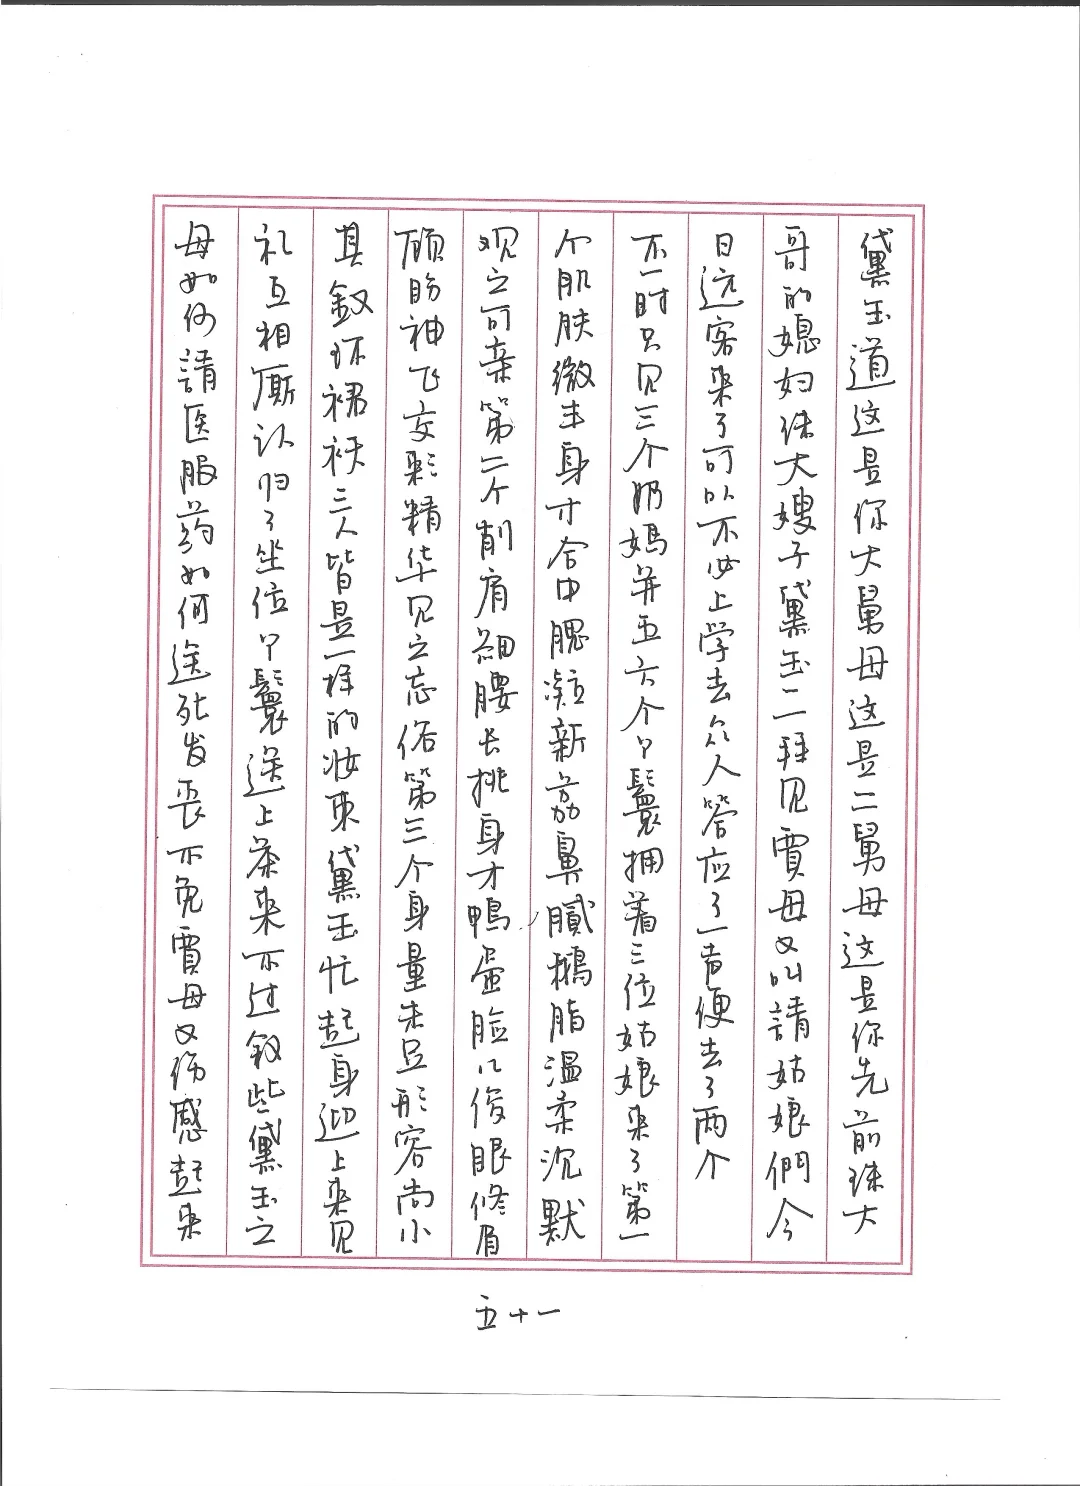 黛玉道这是你大舅母这是二舅母这是你先前珠大
哥的媳妇珠大嫂子黛玉一一拜见賈母又叫請姑娘們今
日远客来了可以不必上学去众人答应了一声便去了两个
不一时只见三个奶媽并五六个丫鬟拥着三位姑娘来了第一
个肌肤微丰身才合中腮凝新荔鼻腻鵝脂温柔沉默
观之可亲第二个削肩細腰长挑身才鴨蛋脸儿俊眼修眉
顾盼神飞文彩精华见之忘俗第三个身量未足形容尚小
其釵环裙袄三人皆是一样的妆束黛玉忙起身迎上来见
礼互相厮认归了坐位丫鬟送上茶来不过叙些黛玉之
母如何請医服药如何送死发丧不免賈母又伤感起来
五十一